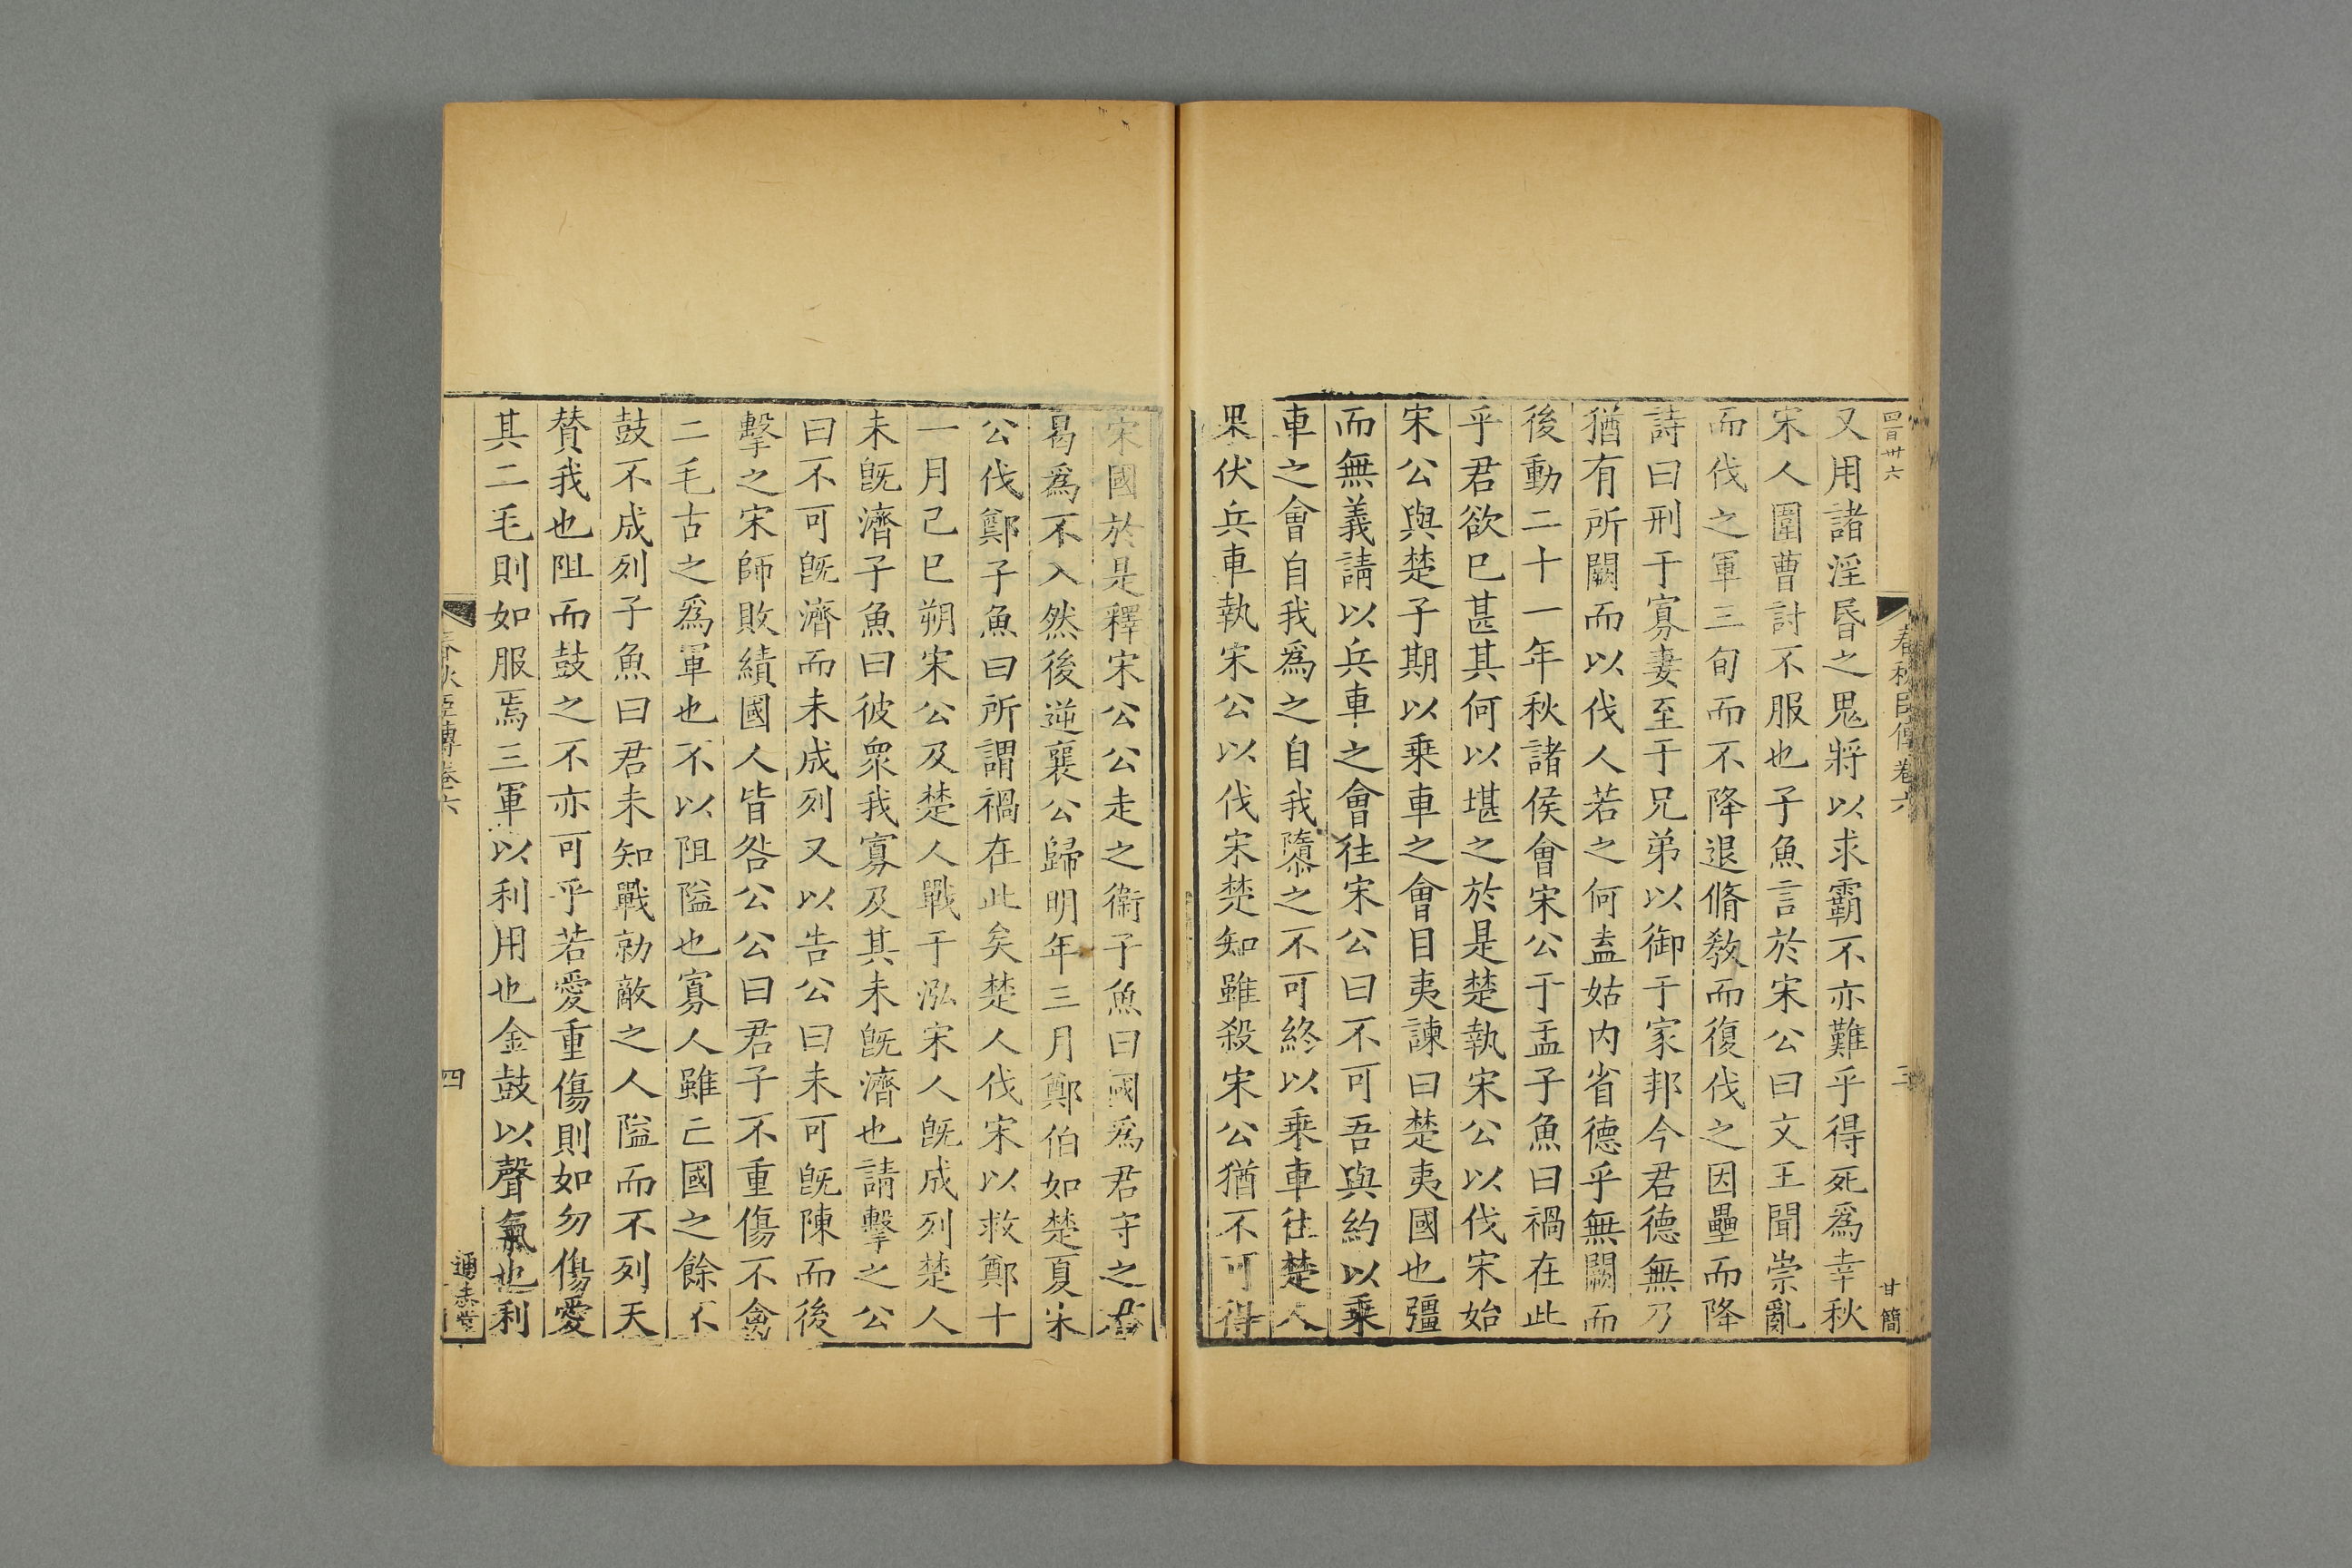 四百卅六
春秋臣傳卷六
三
甘簡
又用諸淫昏之鬼將以求霸不亦難乎得死爲幸秋
宋人圍曹討不服也子魚言於宋公曰文王聞崇亂
而伐之軍三旬而不降退脩敎而復伐之因壘而降
詩曰刑于寡妻至于兄弟以御于家邦今君德無乃
猶有所闕而以伐人若之何盍姑内省德乎無闕而
後動二十一年秋諸侯會宋公于盂子魚曰禍在此
乎君欲已甚其何以堪之於是楚執宋公以伐宋始
宋公與楚子期以乗車之會目夷諫曰楚夷國也彊
而無義請以兵車之會往宋公曰不可吾與約以乗
車之會自我爲之自我隳之不可終以乗車往楚人
果伏兵車執宋公以伐宋楚知雖殺宋公猶不可得
宋國於是釋宋公公走之衞子魚曰國爲君守之君
曷爲不入然後逆襄公歸明年三月鄭伯如楚夏宋
公伐鄭子魚曰所謂禍在此矣楚人伐宋以救鄭十
一月己巳朔宋公及楚人戰于泓宋人旣成列楚人
未旣濟子魚曰彼衆我寡及其未旣濟也請擊之公
曰不可旣濟而未成列又以告公曰未可旣陳而後
擊之宋師敗績國人皆咎公公曰君子不重傷不禽
二毛古之爲軍也不以阻隘也寡人雖亡國之餘不
鼓不成列子魚曰君未知戰勍敵之人隘而不列天
賛我也阻而鼓之不亦可乎若愛重傷則如勿傷愛
其二毛則如服焉三軍以利用也金鼓以聲氣也利
春秋臣傳卷六
四
通志堂